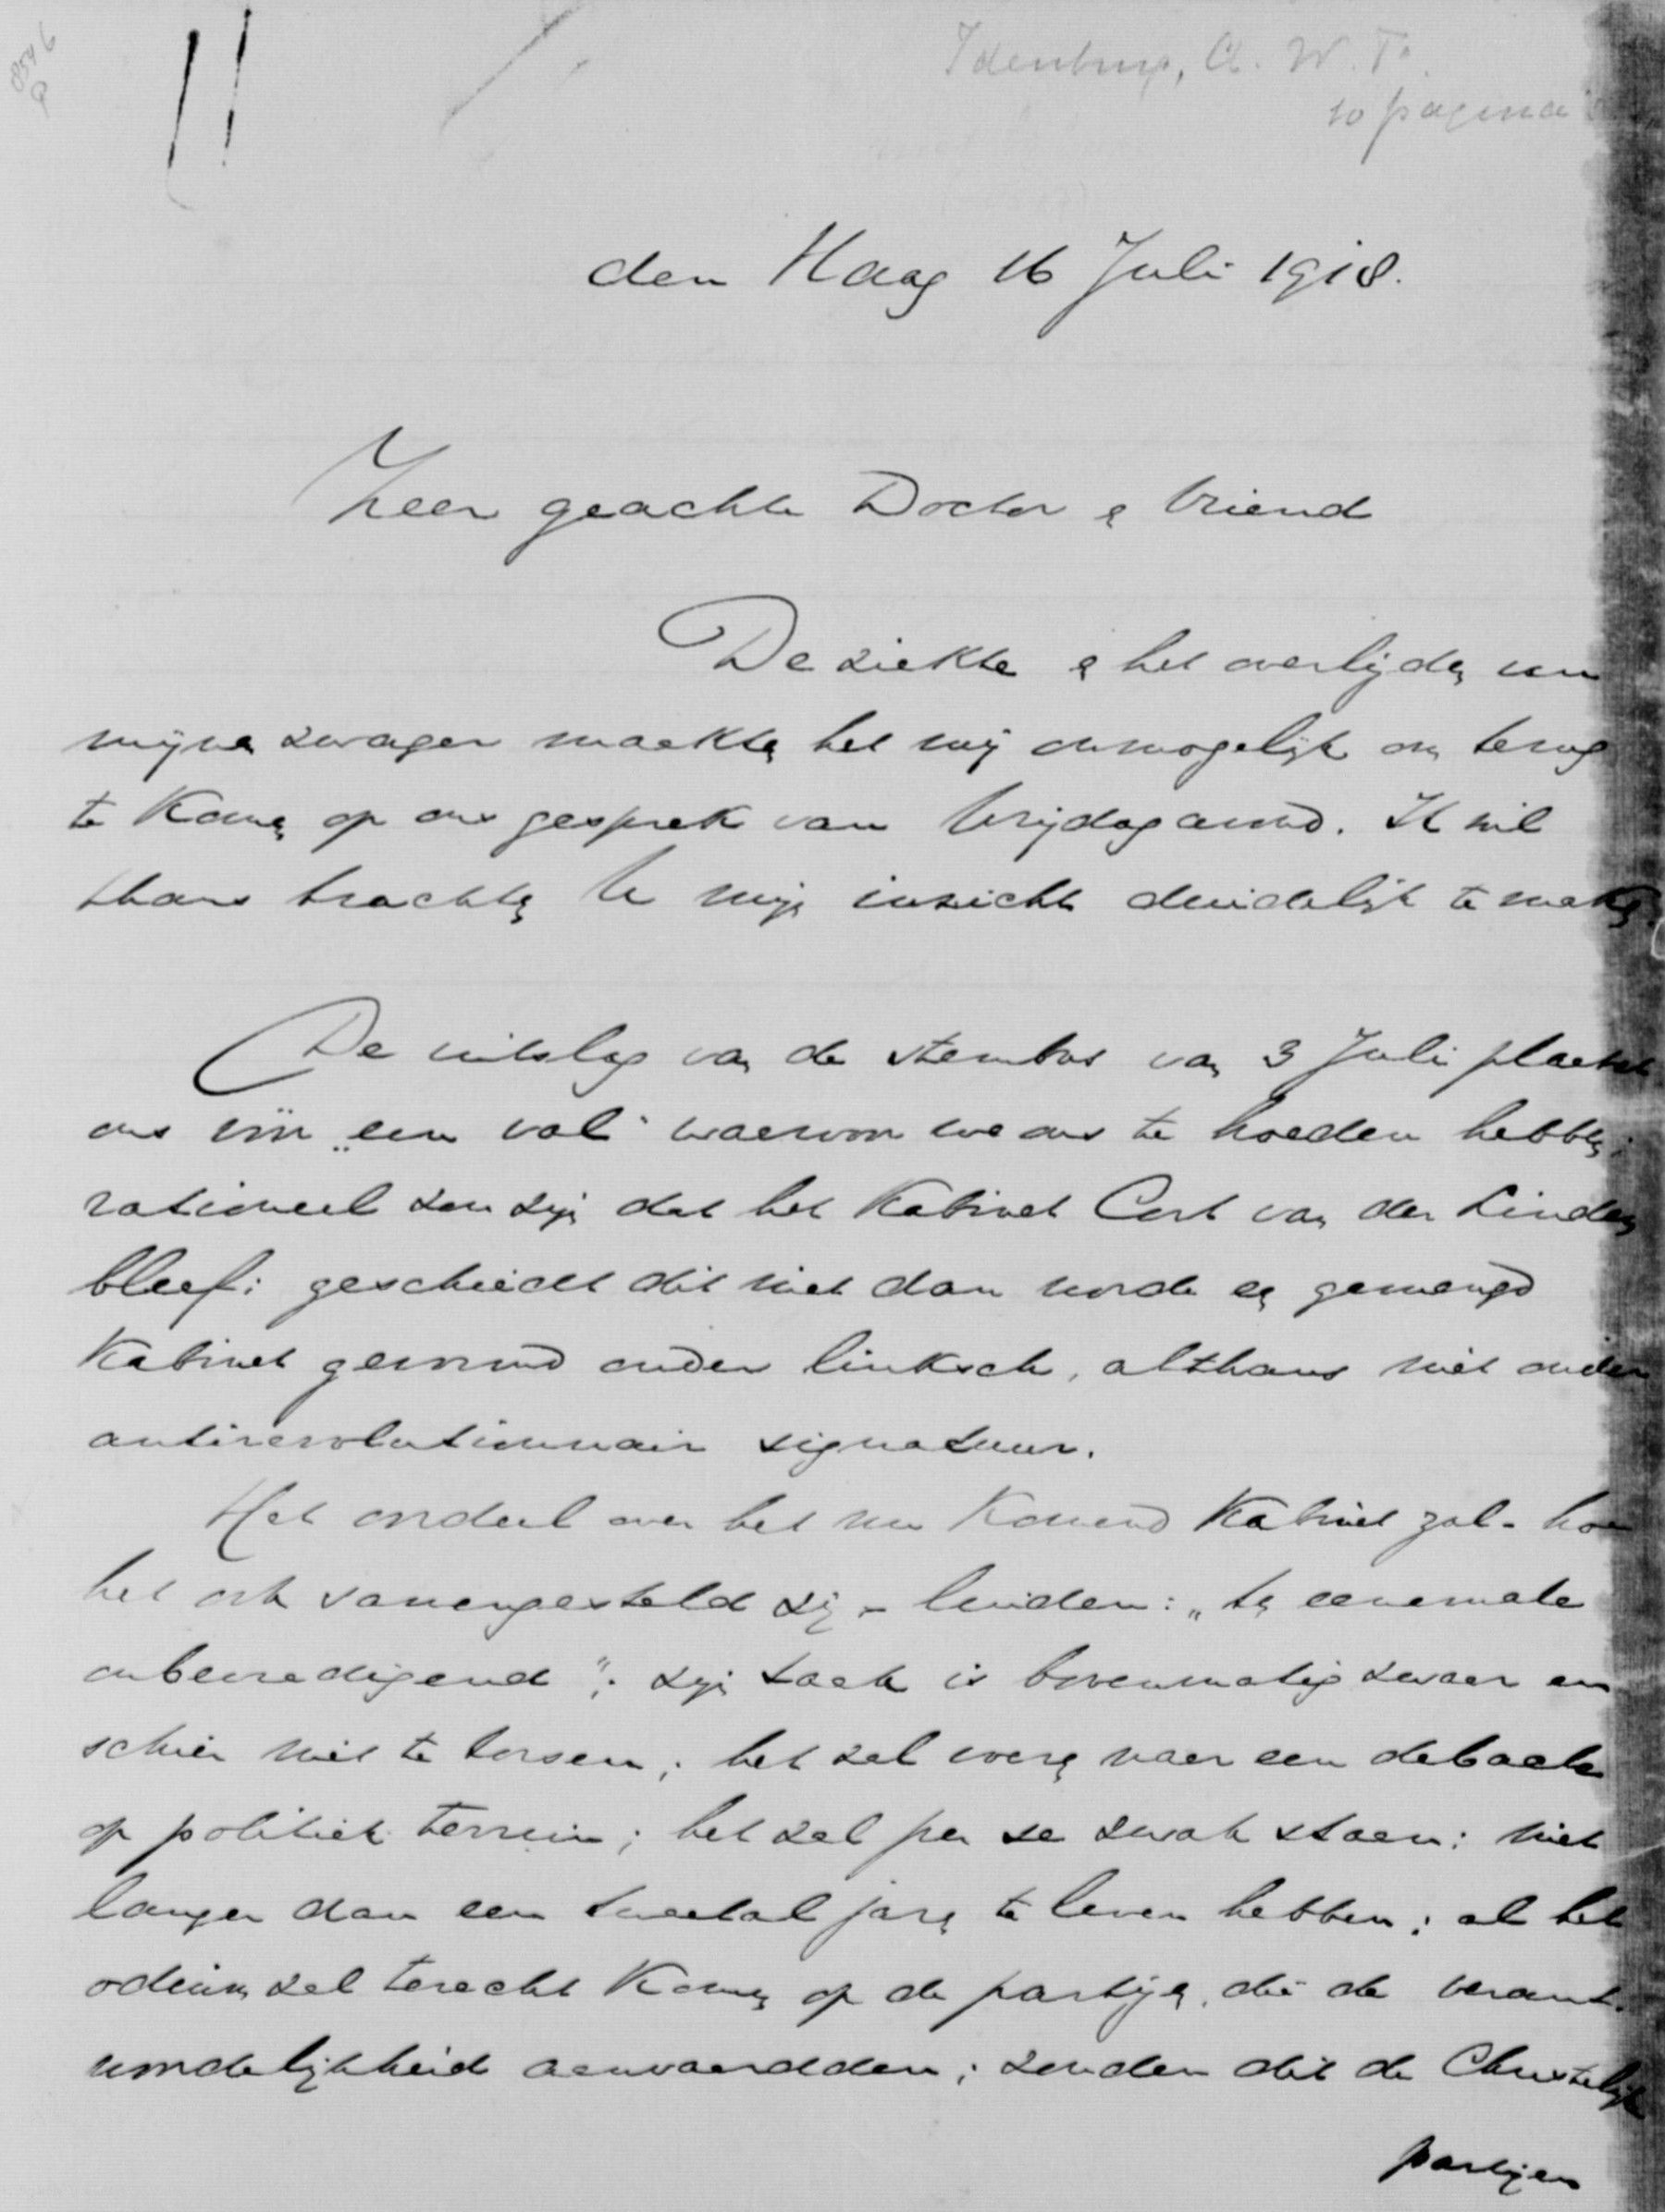 8546
Idenburg, A. W. F.
10 pagina's
den Haag 16 Juli 1918.
Zeer geachte Doctor & Vriend
De ziekte & het overlijden van
mijne zwager maakte het mij onmogelijk om terug
te komen op ons gesprek van Vrijdagavond. Ik wil
thans trachten U mijn inzicht duidelijk te maken.
De uitslag van de stembus van 3 Juli plaatst
ons vóór "een val" waarvoor we ons te hoeden hebben;
rationeel zou zijn dat het Kabinet Cort van der Linden
bleef: geschiedt dit niet dan worde een gemengd
Kabinet gevormd onder linksch, althans niet onder
antirevolutionnair signatuur.
Het oordeel over het nu komend Kabinet zal - hoe
het ook samengesteld zij - luiden: "ten eenemale
onbevredigend"; zijn taak is bovenmatig zwaar en
schier niet te torsen; het zal voeren naar een debacle
op politiek terrein; het zal per se zwak staan: niet
langer dan een tweetal jaren te leven hebben; al het
odium zal terecht komen op de partijen, die de verant-
woordelijkheid aanvaardden; zouden dit de Christelijke
partijen